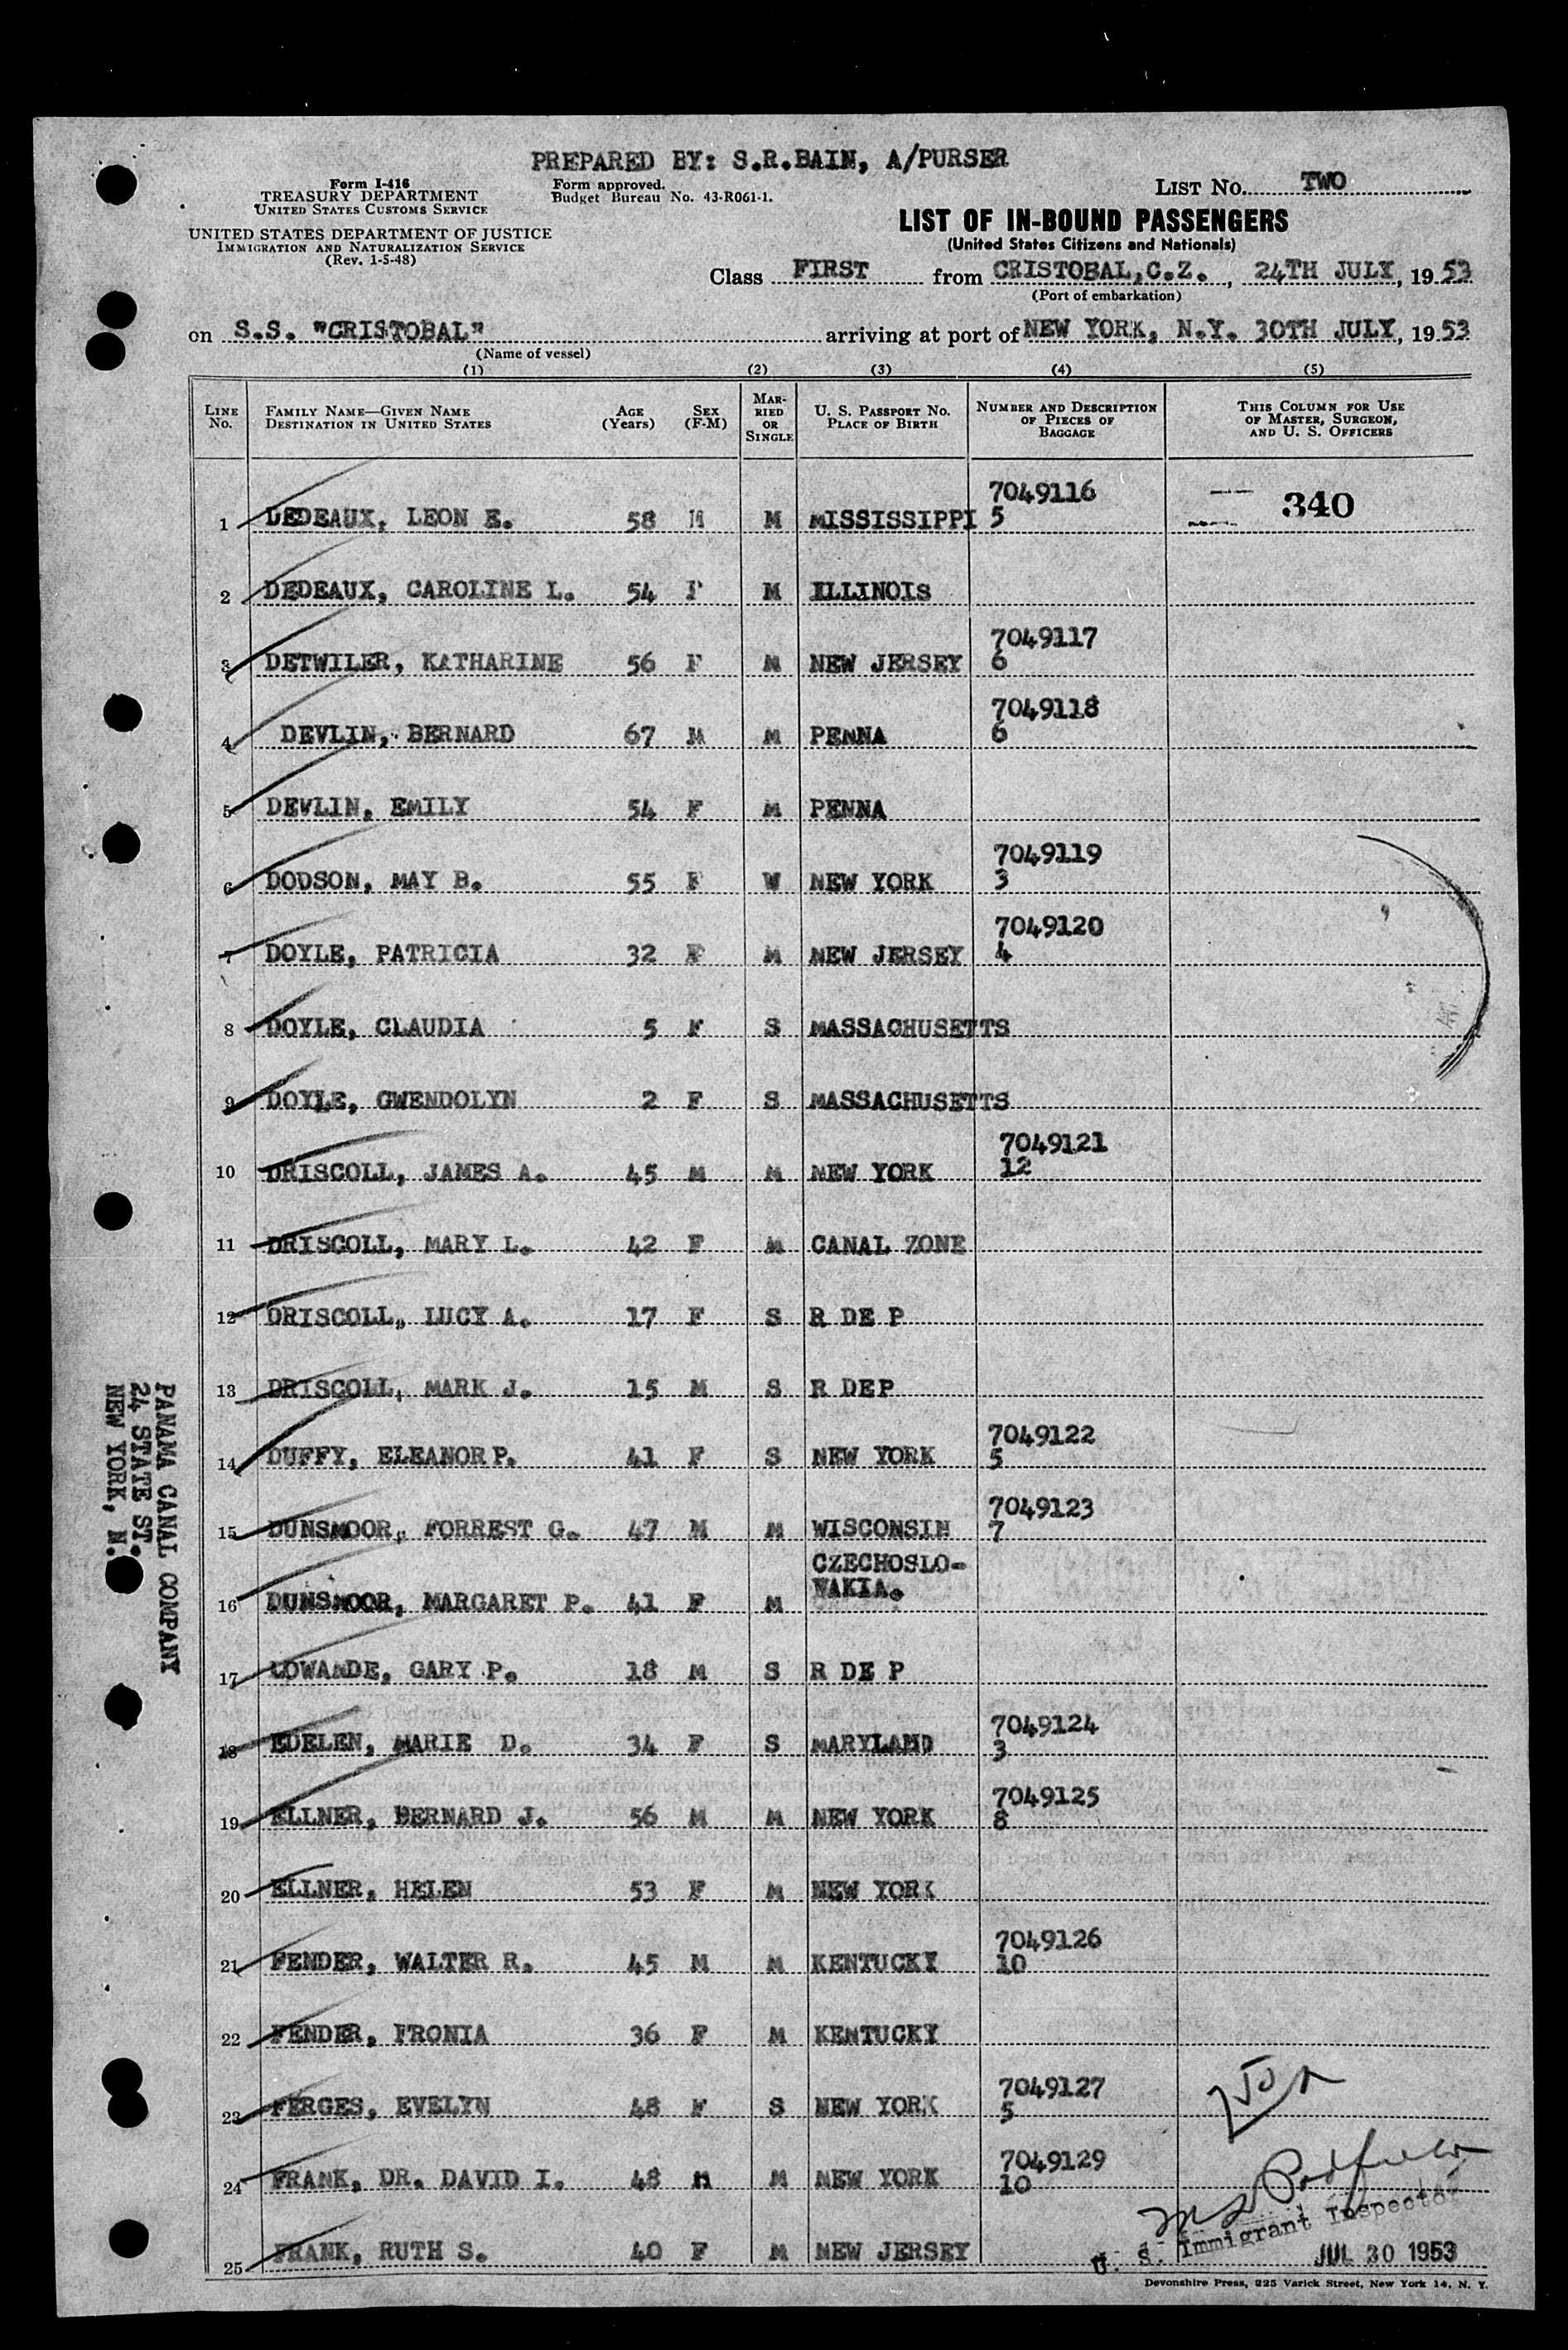 PREPARED BY: S.R.BAIN, A/PURSER
Form I-416
TREASURY DEPARTMENT
UNITED STATES CUSTOMS SERVICE
UNITED STATES DEPARTMENT OF JUSTICE
IMMIGRATION AND NATURALIZATION SERVICE
(Rev. 1-5-48)
Form approved.
Budget Bureau No. 43-R061-1.
LIST No. TWO
LIST OF IN-BOUND PASSENGERS
(United States Citizens and Nationals)
Class FIRST from CRISTOBAL,C.Z., 24TH JULY, 1953
(Port of embarkation)
on S.S. "CRISTOBAL" arriving at port of NEW YORK, N.Y. 30TH JULY, 1953
(Name of vessel)
(1) (2) (3) (4) (5)
LINE No.
FAMILY NAME—GIVEN NAME
DESTINATION IN UNITED STATES
AGE (Years)
SEX (F-M)
MARRIED OR SINGLE
U. S. PASSPORT NO.
PLACE OF BIRTH
NUMBER AND DESCRIPTION
OF PIECES OF
BAGGAGE
THIS COLUMN FOR USE
OF MASTER, SURGEON,
AND U. S. OFFICERS
7049116
1 DEDEAUX, LEON E. 58 M M MISSISSIPPI 5 340
2 DEDEAUX, CAROLINE L. 54 F M ILLINOIS
7049117
3 DETWILER, KATHARINE 56 F M NEW JERSEY 6
7049118
4 DEVLIN, BERNARD 67 M M PENNA 6
5 DEVLIN, EMILY 54 F M PENNA
7049119
6 DODSON, MAY B. 55 F W NEW YORK 3
7049120
7 DOYLE, PATRICIA 32 F M NEW JERSEY 4
8 DOYLE, CLAUDIA 5 F S MASSACHUSETTS
9 DOYLE, GWENDOLYN 2 F S MASSACHUSETTS
7049121
10 DRISCOLL, JAMES A. 45 M M NEW YORK 12
11 DRISCOLL, MARY L. 42 F M CANAL ZONE
12 DRISCOLL, LUCY A. 17 F S R DE P
13 DRISCOLL, MARK J. 15 M S R DEP
7049122
14 DUFFY, ELEANOR P. 41 F S NEW YORK 5
7049123
15 DUNSMOOR, FORREST G. 47 M M WISCONSIN 7
CZECHOSLO-
VAKIA.
16 DUNSMOOR, MARGARET P. 41 F M
17 LOWANDE, GARY P. 18 M S R DE P
7049124
18 EDELEN, MARIE D. 34 F S MARYLAND 3
7049125
19 ELLNER, BERNARD J. 56 M M NEW YORK 8
20 ELLNER, HELEN 53 F M NEW YORK
7049126
21 FENDER, WALTER R. 45 M M KENTUCKY 10
22 FENDER, FRONIA 36 F M KENTUCKY
7049127
23 FERGES, EVELYN 48 F S NEW YORK 5
7049129
24 FRANK, DR. DAVID I. 48 M M NEW YORK 10
25 FRANK, RUTH S. 40 F M NEW JERSEY
U. S. Immigrant Inspector
JUL 30 1953
Devonshire Press, 225 Varick Street, New York 14, N. Y.
PANAMA CANAL COMPANY
24 STATE ST.
NEW YORK, N.